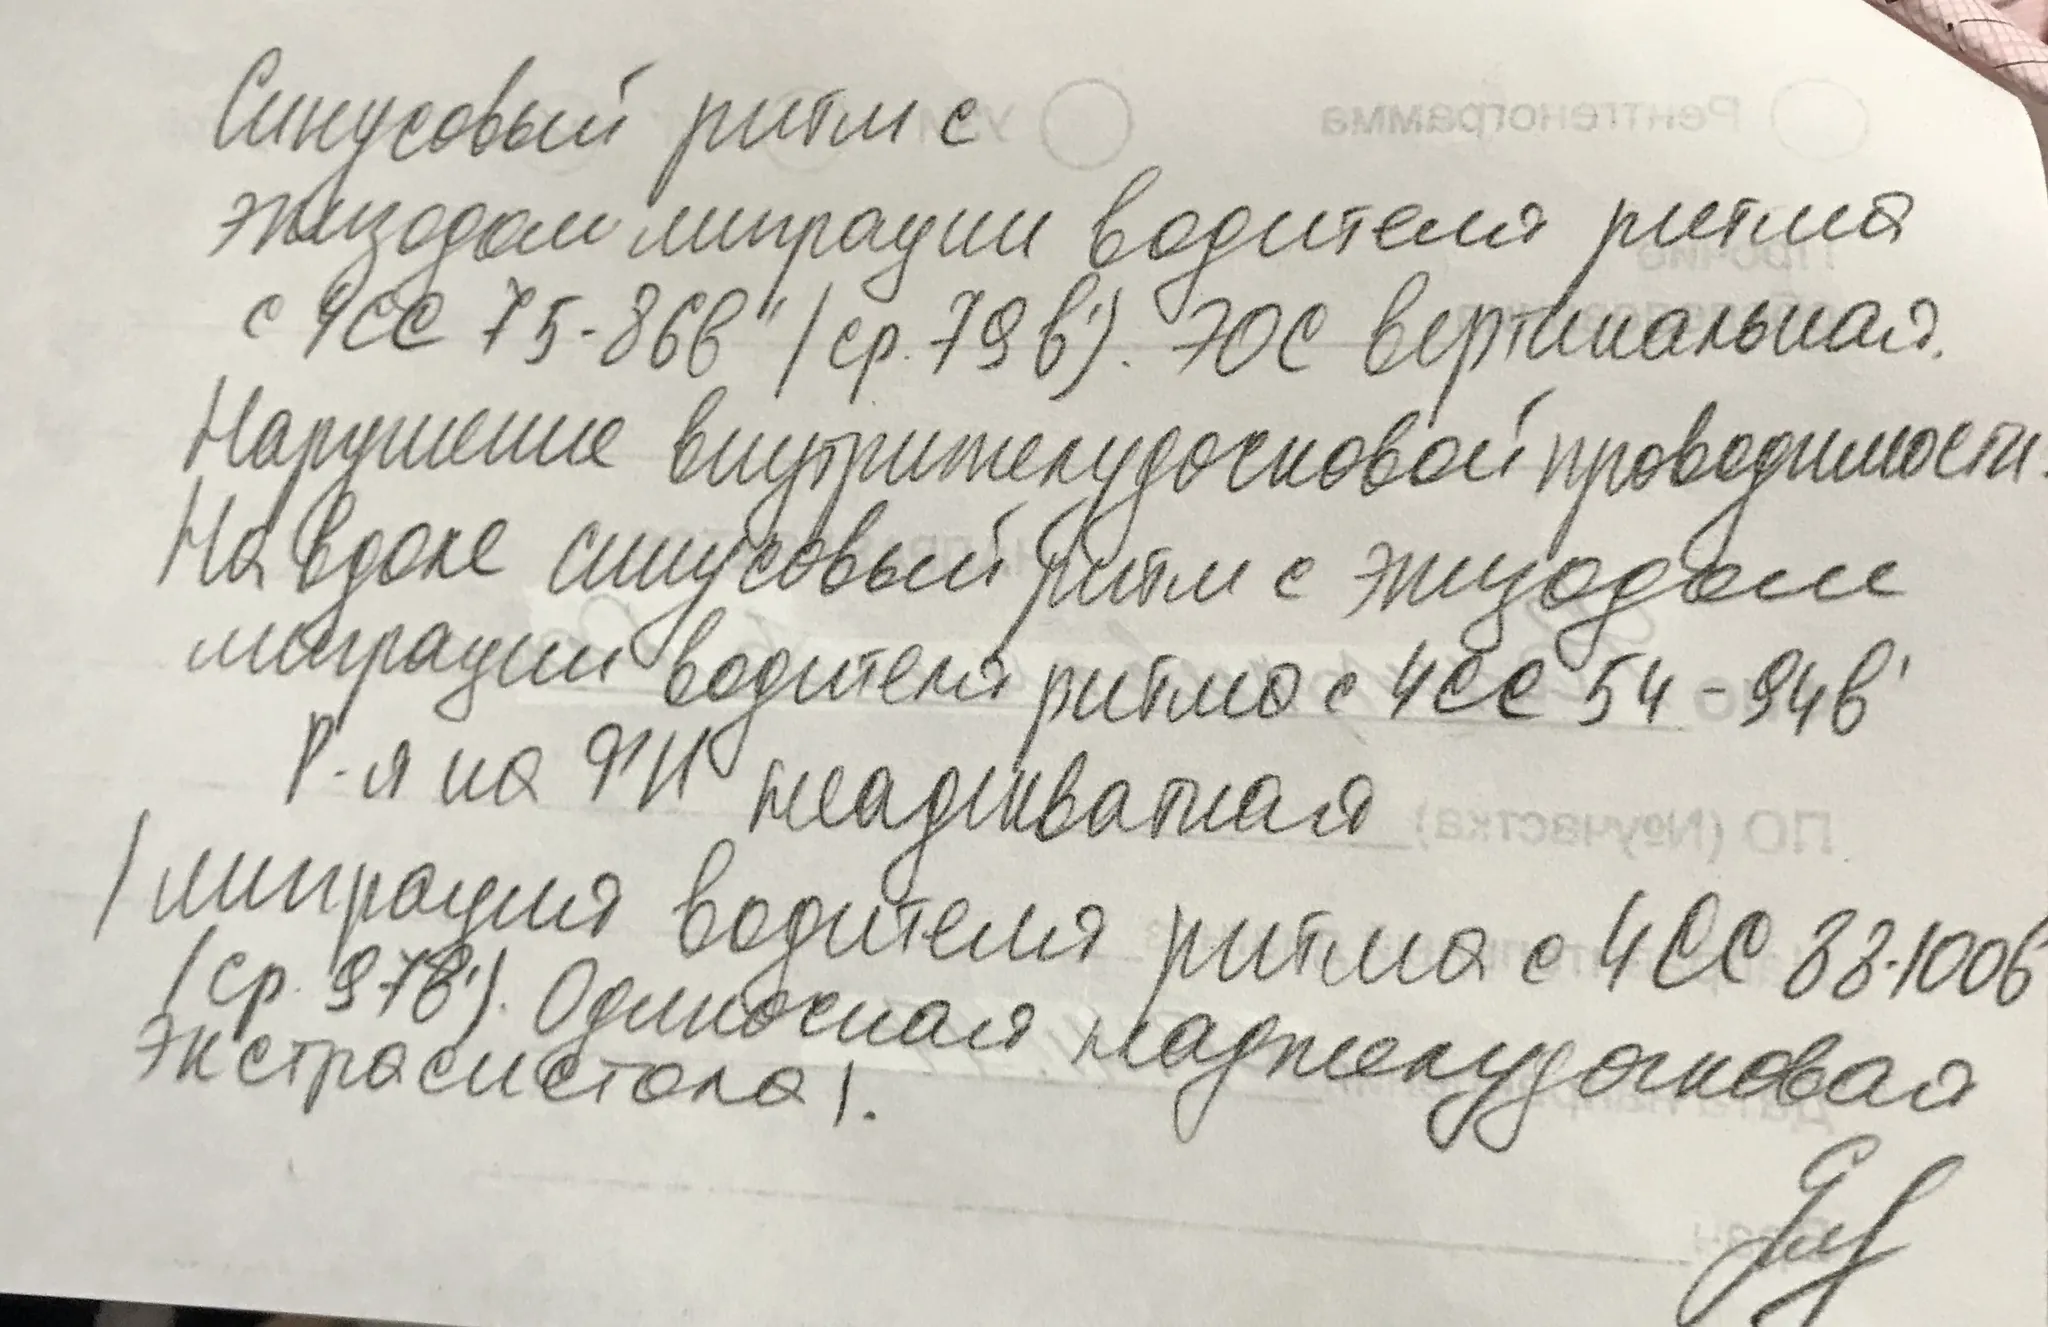 Синусовый ритм с
эпизодом миграции водителя ритма
с ЧСС 75-86в" (ср. 79в'). ЭОС вертикальная.
Нарушение внутрижелудочковой проводимости.
На вдохе синусовый ритм с эпизодом
миграции водителя ритма с ЧСС 54-94в'
Р-я на ФН неадекватная
(миграция водителя ритма с ЧСС 88-100в
(ср. 97в'). Одиночная наджелудочковая
экстрасистола).
Рентгенограмма
Прочие
ПО (№участка)